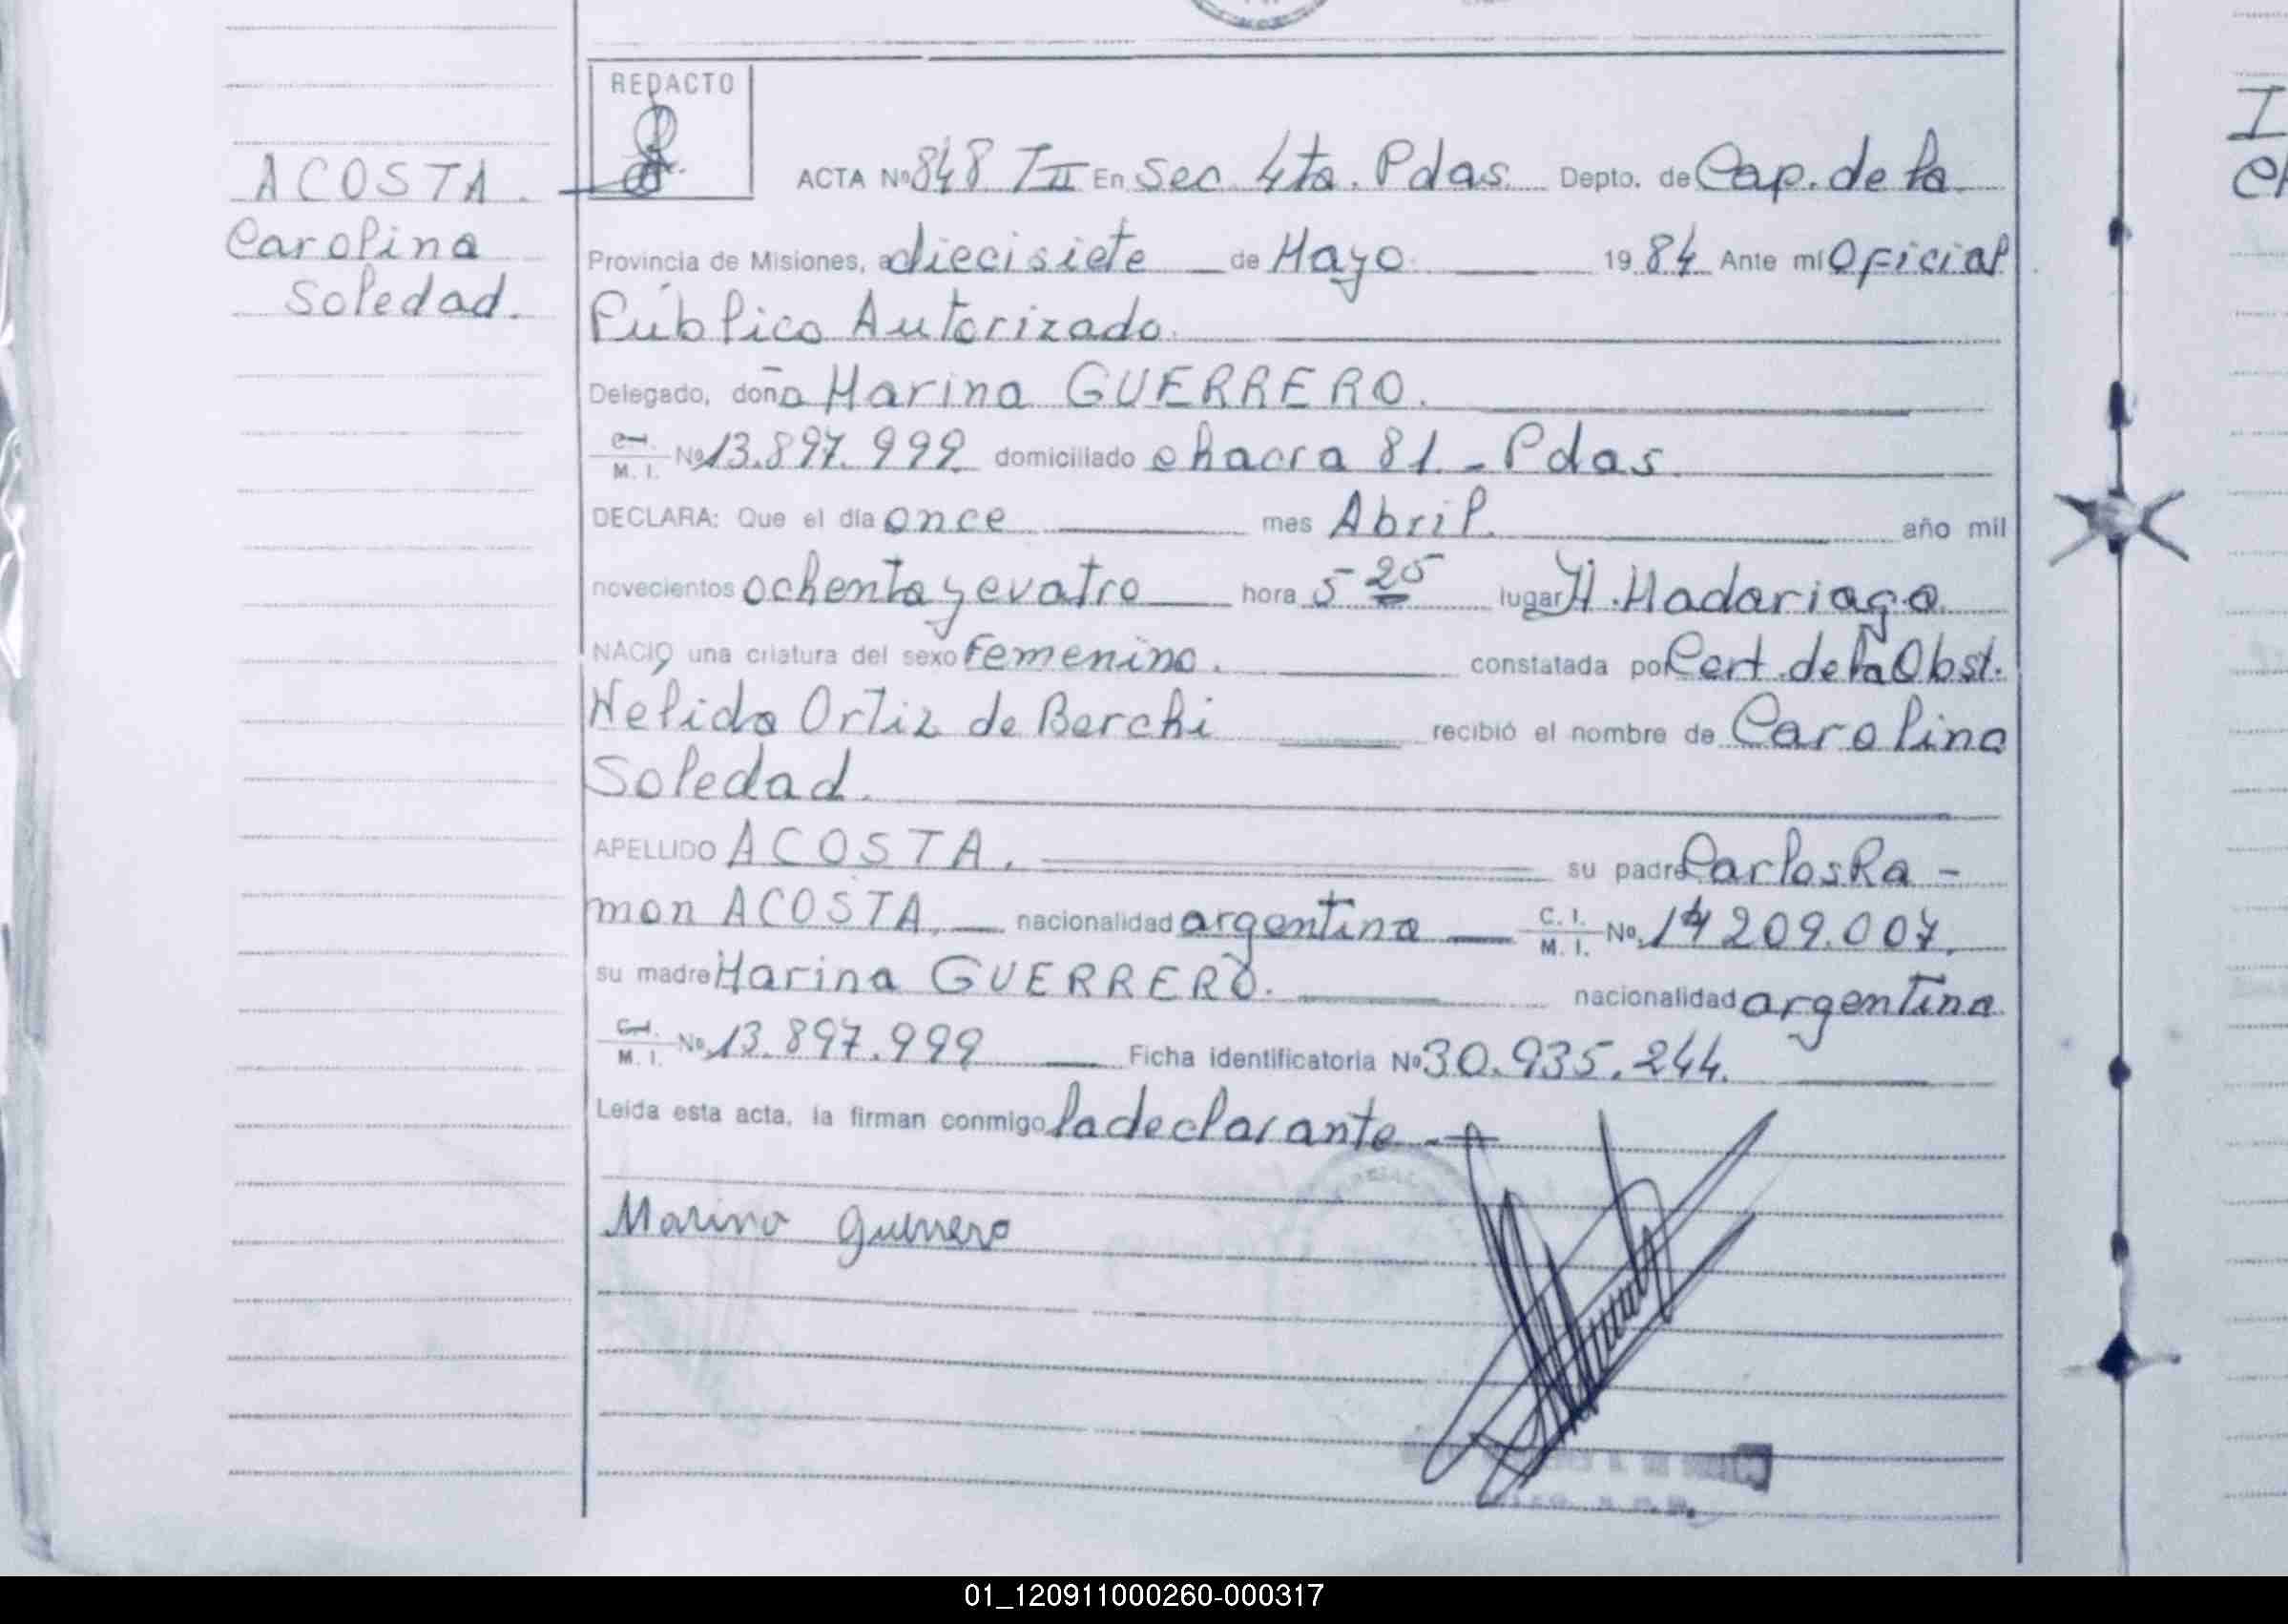 REDACTO
ACOSTA.
Carolina
Soledad.
ACTA Nº 848 TII En Sec. 4ta. Pdas. Depto. de Cap. de la
Provincia de Misiones, a diecisiete de Mayo 1984 Ante mí Oficial
Público Autorizado.
Delegado, doña Marina GUERRERO.
M. I. Nº 13.897.999 domiciliado chacra 81 - Pdas.
DECLARA: Que el día once mes Abril. año mil
novecientos ochenta y cuatro hora 5 25 lugar H. Madariaga.
NACIO una criatura del sexo Femenino. constatada por Cert. de la Obst.
Nelida Ortiz de Berchi recibió el nombre de Carolina
Soledad.
APELLIDO ACOSTA. su padre Carlos Ra-
mon ACOSTA. nacionalidad argentina C. I. M. I. Nº 14 209.007.
su madre Marina GUERRERO. nacionalidad argentina.
C. I. M. I. Nº 13.897.999 Ficha identificatoria Nº 30.935.244.
Leída esta acta, la firman conmigo la declarante.-
Marina Guerrero
01_120911000260-000317